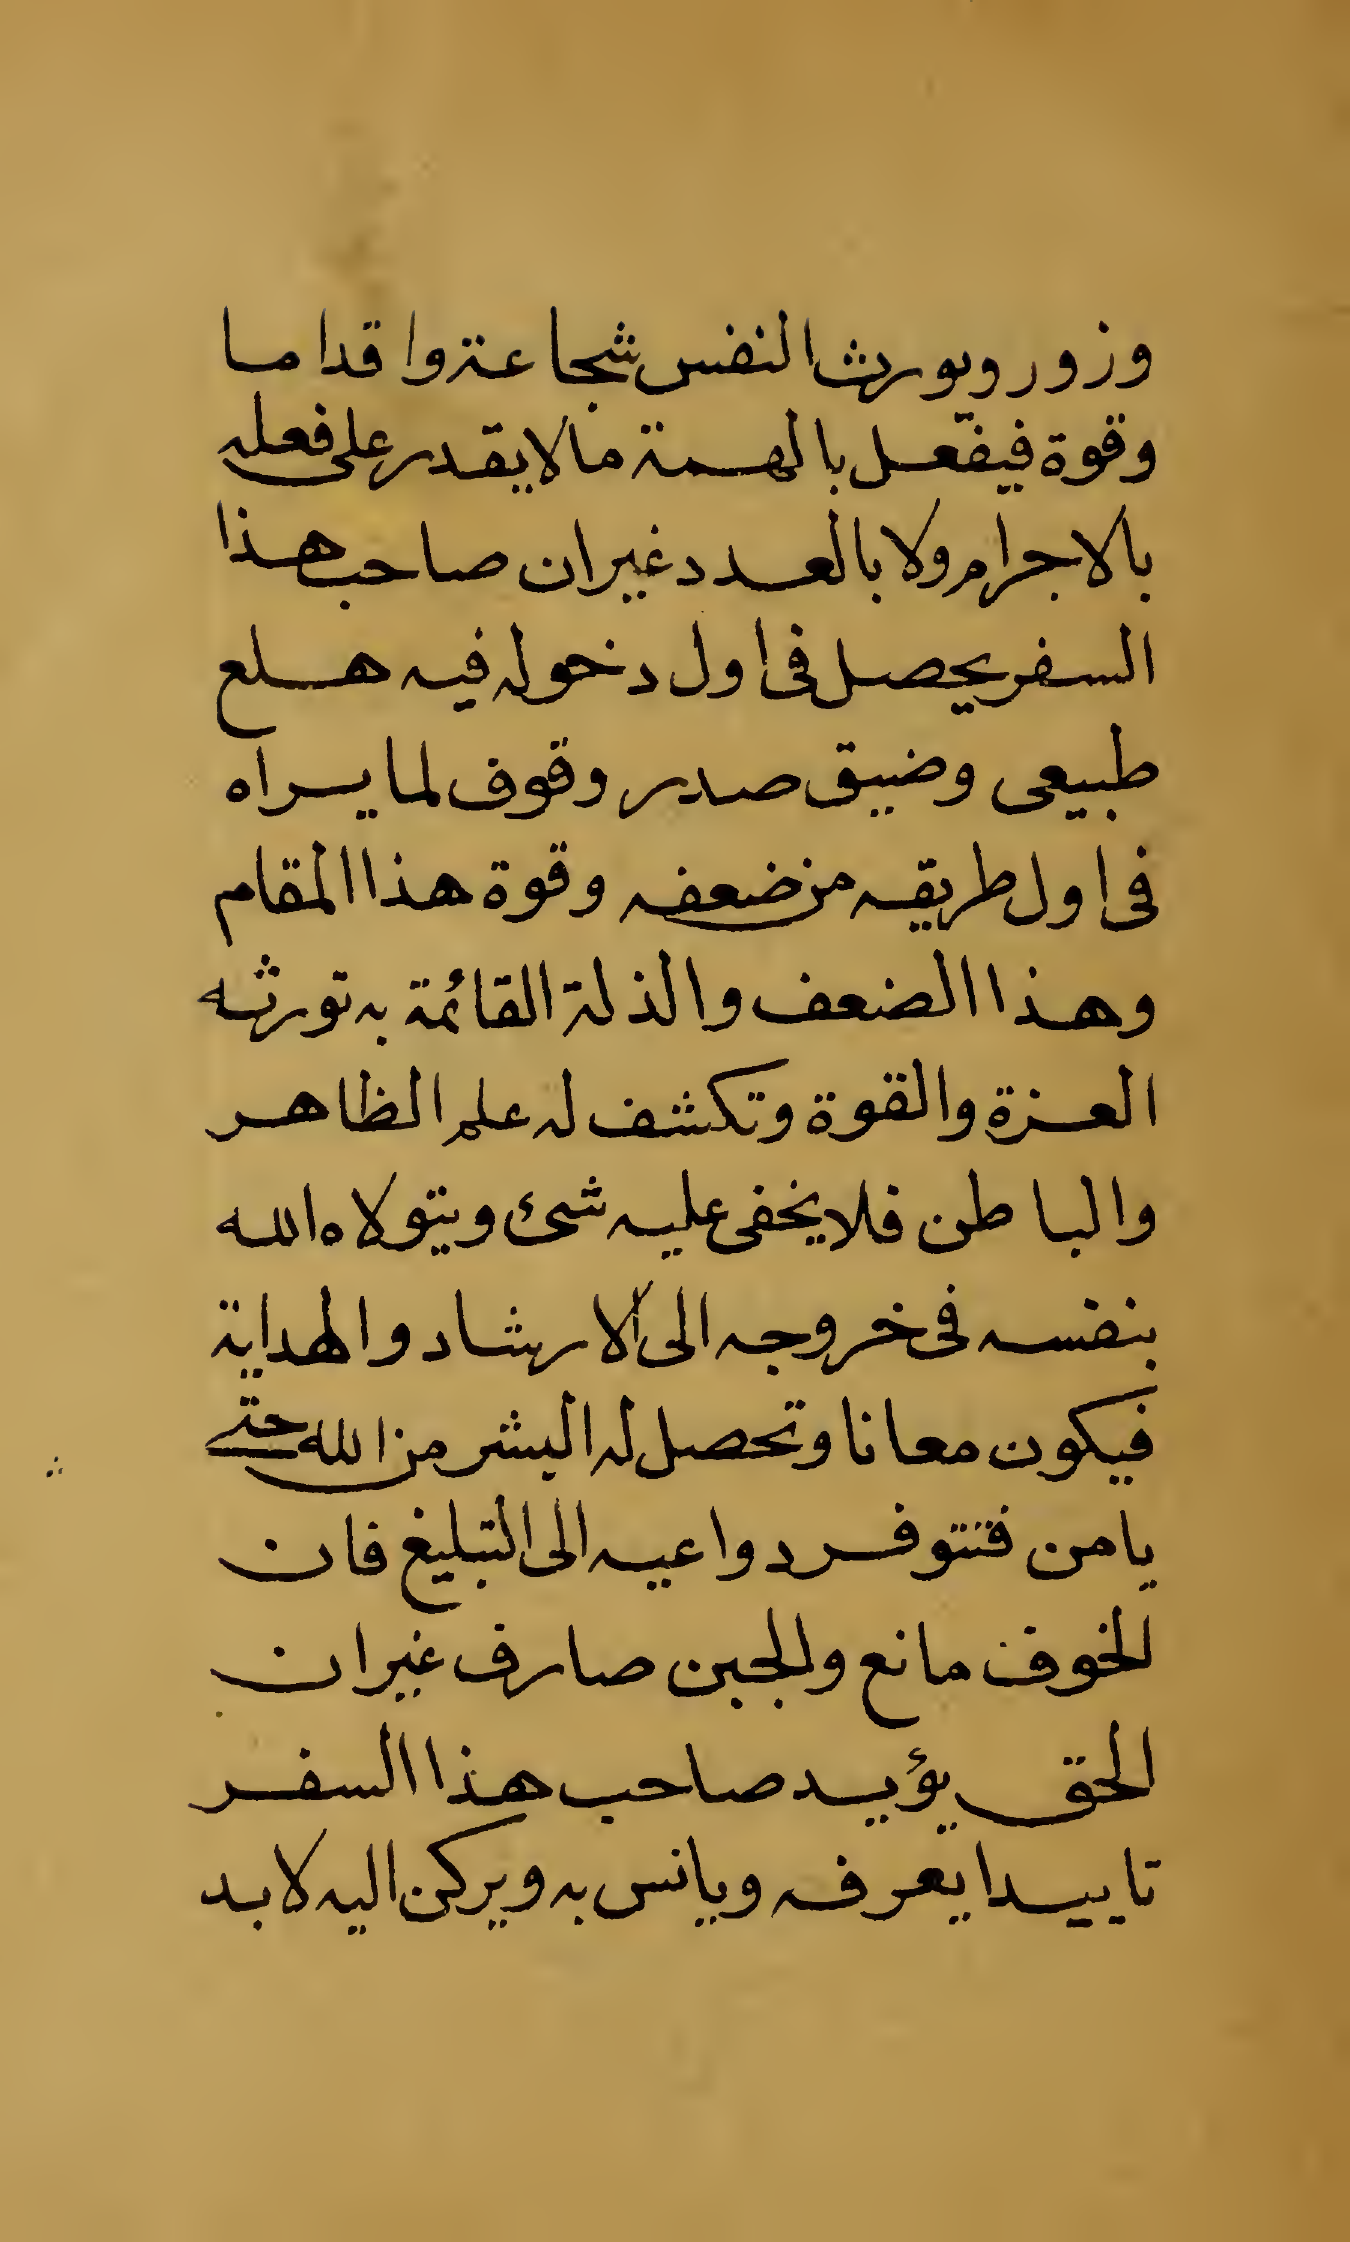 وزور ويورث النفس شجاعة واقداما
وقوة فيفعل بالهمة مالا يقدر على فعله
بالاجرام ولا بالعدد غير ان صاحب هذا
السفر يحصل فى اول دخوله فيه هلع
طبيعى وضيق صدر وقوف لما يراه
فى اول طريقه من ضعفه وقوة هذا المقام
وهذا الضعف والذلة القائمة به تورثه
العزة والقوة وتكشف له علم الظاهر
والباطن فلا يخفى عليه شئ ويتولاه الله
بنفسه فى خروجه الى الارشاد والهداية
فيكون معانا وتحصل له البشر من الله حتى
يامن فتتوفر دواعيه الى التبليغ فان
الخوف مانع والجبن صارف غير ان
الحق يؤيد صاحب هذا السفر
تاييدا يعرفه ويانس به ويركن اليه لابد